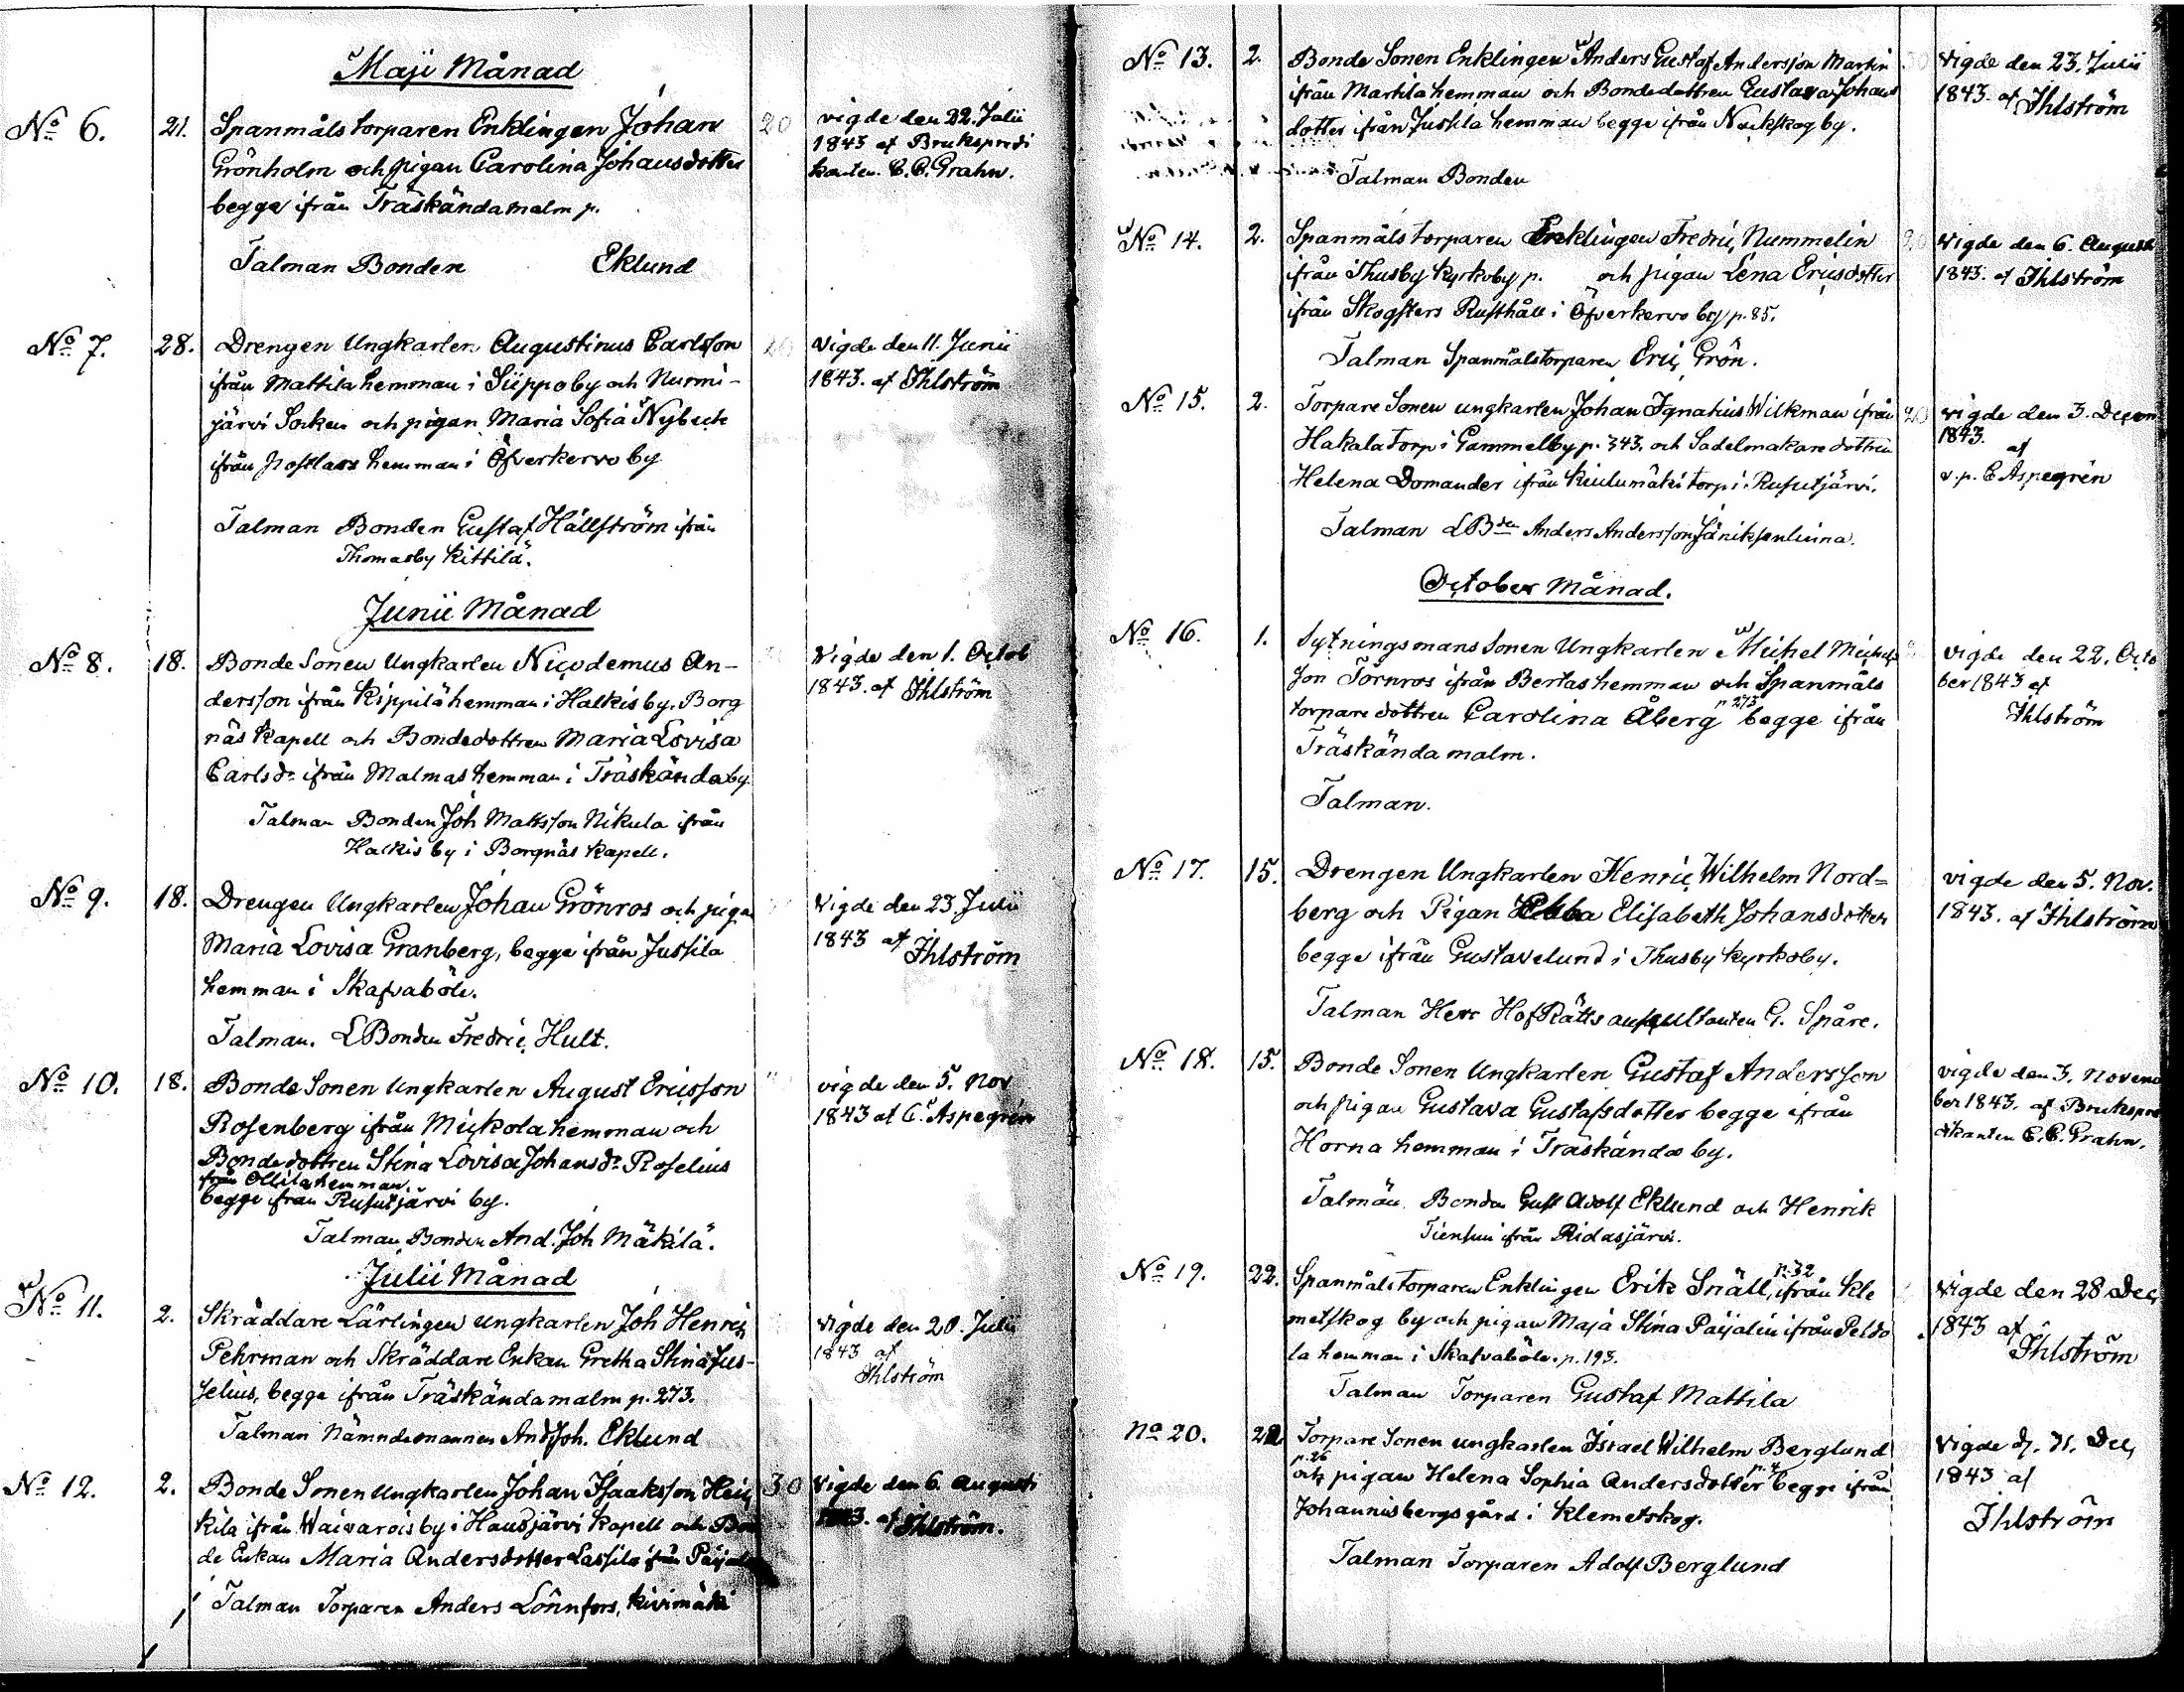 Maji Månad
No 6. 21. Spanmåls torparen Enklingen Johan 20 vigde den 22. Julii
Grönholm och pigan Carolina Johansdotter 1843 af Brukspredi
begge ifrån Träskändamalm p. kanten C. C. Grahn.
Talman Bonden Eklund
No 7. 28. Drengen Ungkarlen Augustinus Carlsson 20 Vigde den 11. Junii
ifrån Mattila hemman i Siippoby och Nurmi- 1843. af Ihlström
järvi Socken och pigan Maria Sofia Nybeck
ifrån hemman i Öfverkervo by
Talman Bonden Gustaf Hällström ifrån
Thomasby Kittilä.
Junii Månad
No 8. 18. Bonde Sonen Ungkarlen Nicodemus An- Vigde den 1. Octob
dersson ifrån Kippilä hemman i Halkis by. Borg 1843. af Ihlström
näs Kapell och Bondedottren Maria Lovisa
Carlsdr ifrån Malmas hemman i Träskända by
Talman Bonden Joh Mattsson Nikula ifrån
Halkis by i Borgnäs Kapell.
No 9. 18. Drengen Ungkarlen Johan Grönros och pigan Vigde den 23 Julii
Maria Lovisa Granberg, begge ifrån Jussila 1843 af Ihlström
hemman i Skafvaböle.
Talman. LBonden Fredric Hult.
No 10. 18. Bonde Sonen Ungkarlen August Ericsson " vigde den 5. Nov
Rosenberg ifrån Mickola hemman och 1843 af C. Aspegrén
Bondedottren Stina Lovisa Johansdr Roselius
från Ollila hemman
begge ifrån Rusutjärvi by.
Talman Bonden And. Joh Mäkilä.
Julii Månad
No 11. 2. Skräddare Lärlingen Ungkarlen Joh Henric Vigde den 20. Julii
Pehrman och Skräddare Enkan Gretha Stina Jus- 1843 af
selius, begge ifrån Träskändamalm p. 273. Ihlström
Talman Nämndemannen And Joh. Eklund
No 12. 2. Bonde Sonen Ungkarlen Johan Isaaksson Heic 30 Vigde den 6. Augusti
kila ifrån Waivarois by i Hausjärvi Kapell och Bon 1843. af Ihlström.
de Enkan Maria Andersdotter Lassila ifrån
Talman Torparen Anders Lönnfors, Kivimäki
No 13. 2. Bonde Sonen Enklingen Anders Gustaf Andersson Martin Vigde den 23. Julii
ifrån Martila hemman och Bondedottren Gustava Johans 1843. af Ihlström
dotter ifrån Jussila hemman begge ifrån Nackskog by.
Talman Bonden
No 14. 2. Spanmåls torparen Enklingen Fredric Nummelin 20 Vigde den 6. Augusti
ifrån Thusby Kyrkoby p. och pigan Lena Ericsdotter 1843. af Ihlström
ifrån Skogsters Rusthåll i Öfverkervo by p. 85.
Talman Spanmålstorparen Eric Grön.
No 15. 2. Torpare Sonen ungkarlen Johan Ignatius Wilkman ifrån 20 Vigde den 3. Decem
Hakala torp i Gammelby p. 343. och Sadelmakaredottren 1843. af
Helena Domander ifrån Kiulumäki torp i Rusutjärvi. v. p. C Aspegrén
Talman LBden Anders Andersson Jäniksenlinna.
October Månad.
No 16. 1. Sytningsmans Sonen Ungkarlen Michel Michels vigde den 22. Octo
son Törnros ifrån Bertas hemman och Spanmåls ber 1843 af
torpare dottren Carolina Åberg p 273 begge ifrån Ihlström
Träskändamalm.
Talman.
No 17. 15. Drengen Ungkarlen Henric Wilhelm Nord= vigde den 5. Nov.
berg och Pigan Ebba Elisabeth Johansdotter 1843. af Ihlström
begge ifrån Gustavelund i Thusby Kyrkoby.
Talman Herr HofRätts auskultanten G. Spåre.
No 18. 15. Bonde Sonen Ungkarlen Gustaf Andersson vigde den 3. Novem
och pigan Gustava Gustafsdotter begge ifrån ber 1843. af Brukspre
Horna hemman i Träskända by. dikanten C. C. Grahn.
Talmän. Bonden Gust Adolf Eklund och Henrik
Tienhui ifrån Ridasjärvi.
No 19. 22. Spanmåls torparen Enklingen Erik Snäll, p. 32 ifrån Kle Vigde den 28 Dec,
metskog by och pigan Maja Stina Päijalin ifrån Peldo 1843 af
la hemman i Skafvaböle. p. 193. Ihlström
Talman Torparen Gustaf Mattila
No 20. 22. Torpare Sonen ungkarlen Israel Wilhelm Berglund Vigde d. 31. Dec,
p. 26 och pigan Helena Sophia Andersdotter p. 4 begge ifrån 1843 af
Johannisbergs gård i Klemetskog. Ihlström
Talman Torparen Adolf Berglund